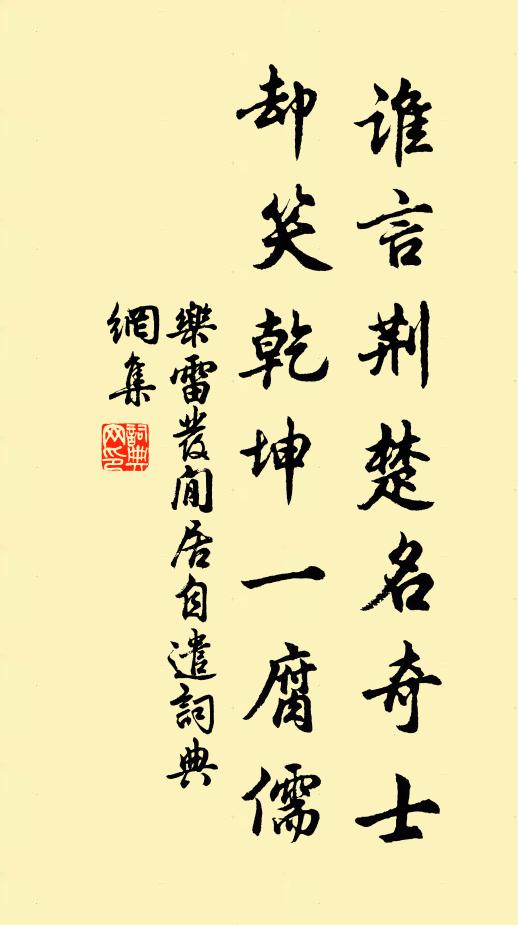 谁言荆楚名奇士
却笑乾坤一腐儒
樂雷發閒居自遣詞典
網集
詞典
网印